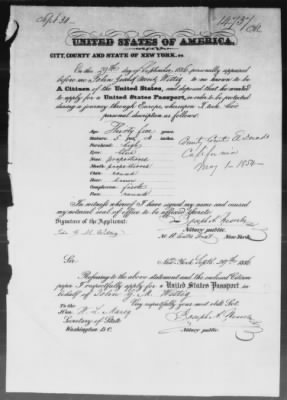 Sept 30
14737
UNITED STATES OF AMERICA.
CITY, COUNTY AND STATE OF NEW YORK, ss.
On the 29th day of September 1856 personally appeared
before me John to me known to be
A Citizen of the United States, and deposed that he wanted
to apply for a United States Passport, in order to be protected
during a journey through Europe, whereupon I took
personal description as follows:
Age: Thirty five years
Stature: 5 feet
Forehead: high
Eyes: blue
Nose: proportioned
Mouth: proportioned
Chin: round
Hair: brown
Complexion: fresh
Face: round
California
May 1 - 1854 -
In witness whereof I have signed my name and caused
my notarial seal of office to be affixed hereto
Signature of the Applicant:
Notary public,
New York
Sir:
New York Sept. 29th 1856
Referring to the above statement and the enclosed Citizen
paper I respectfully apply for a United States Passport in
behalf of John G. M.
To the Very respectfully your most obdt Svt.
Hon. W. L. Marcy
Secretary of State
Washington D.C.
Notary public.